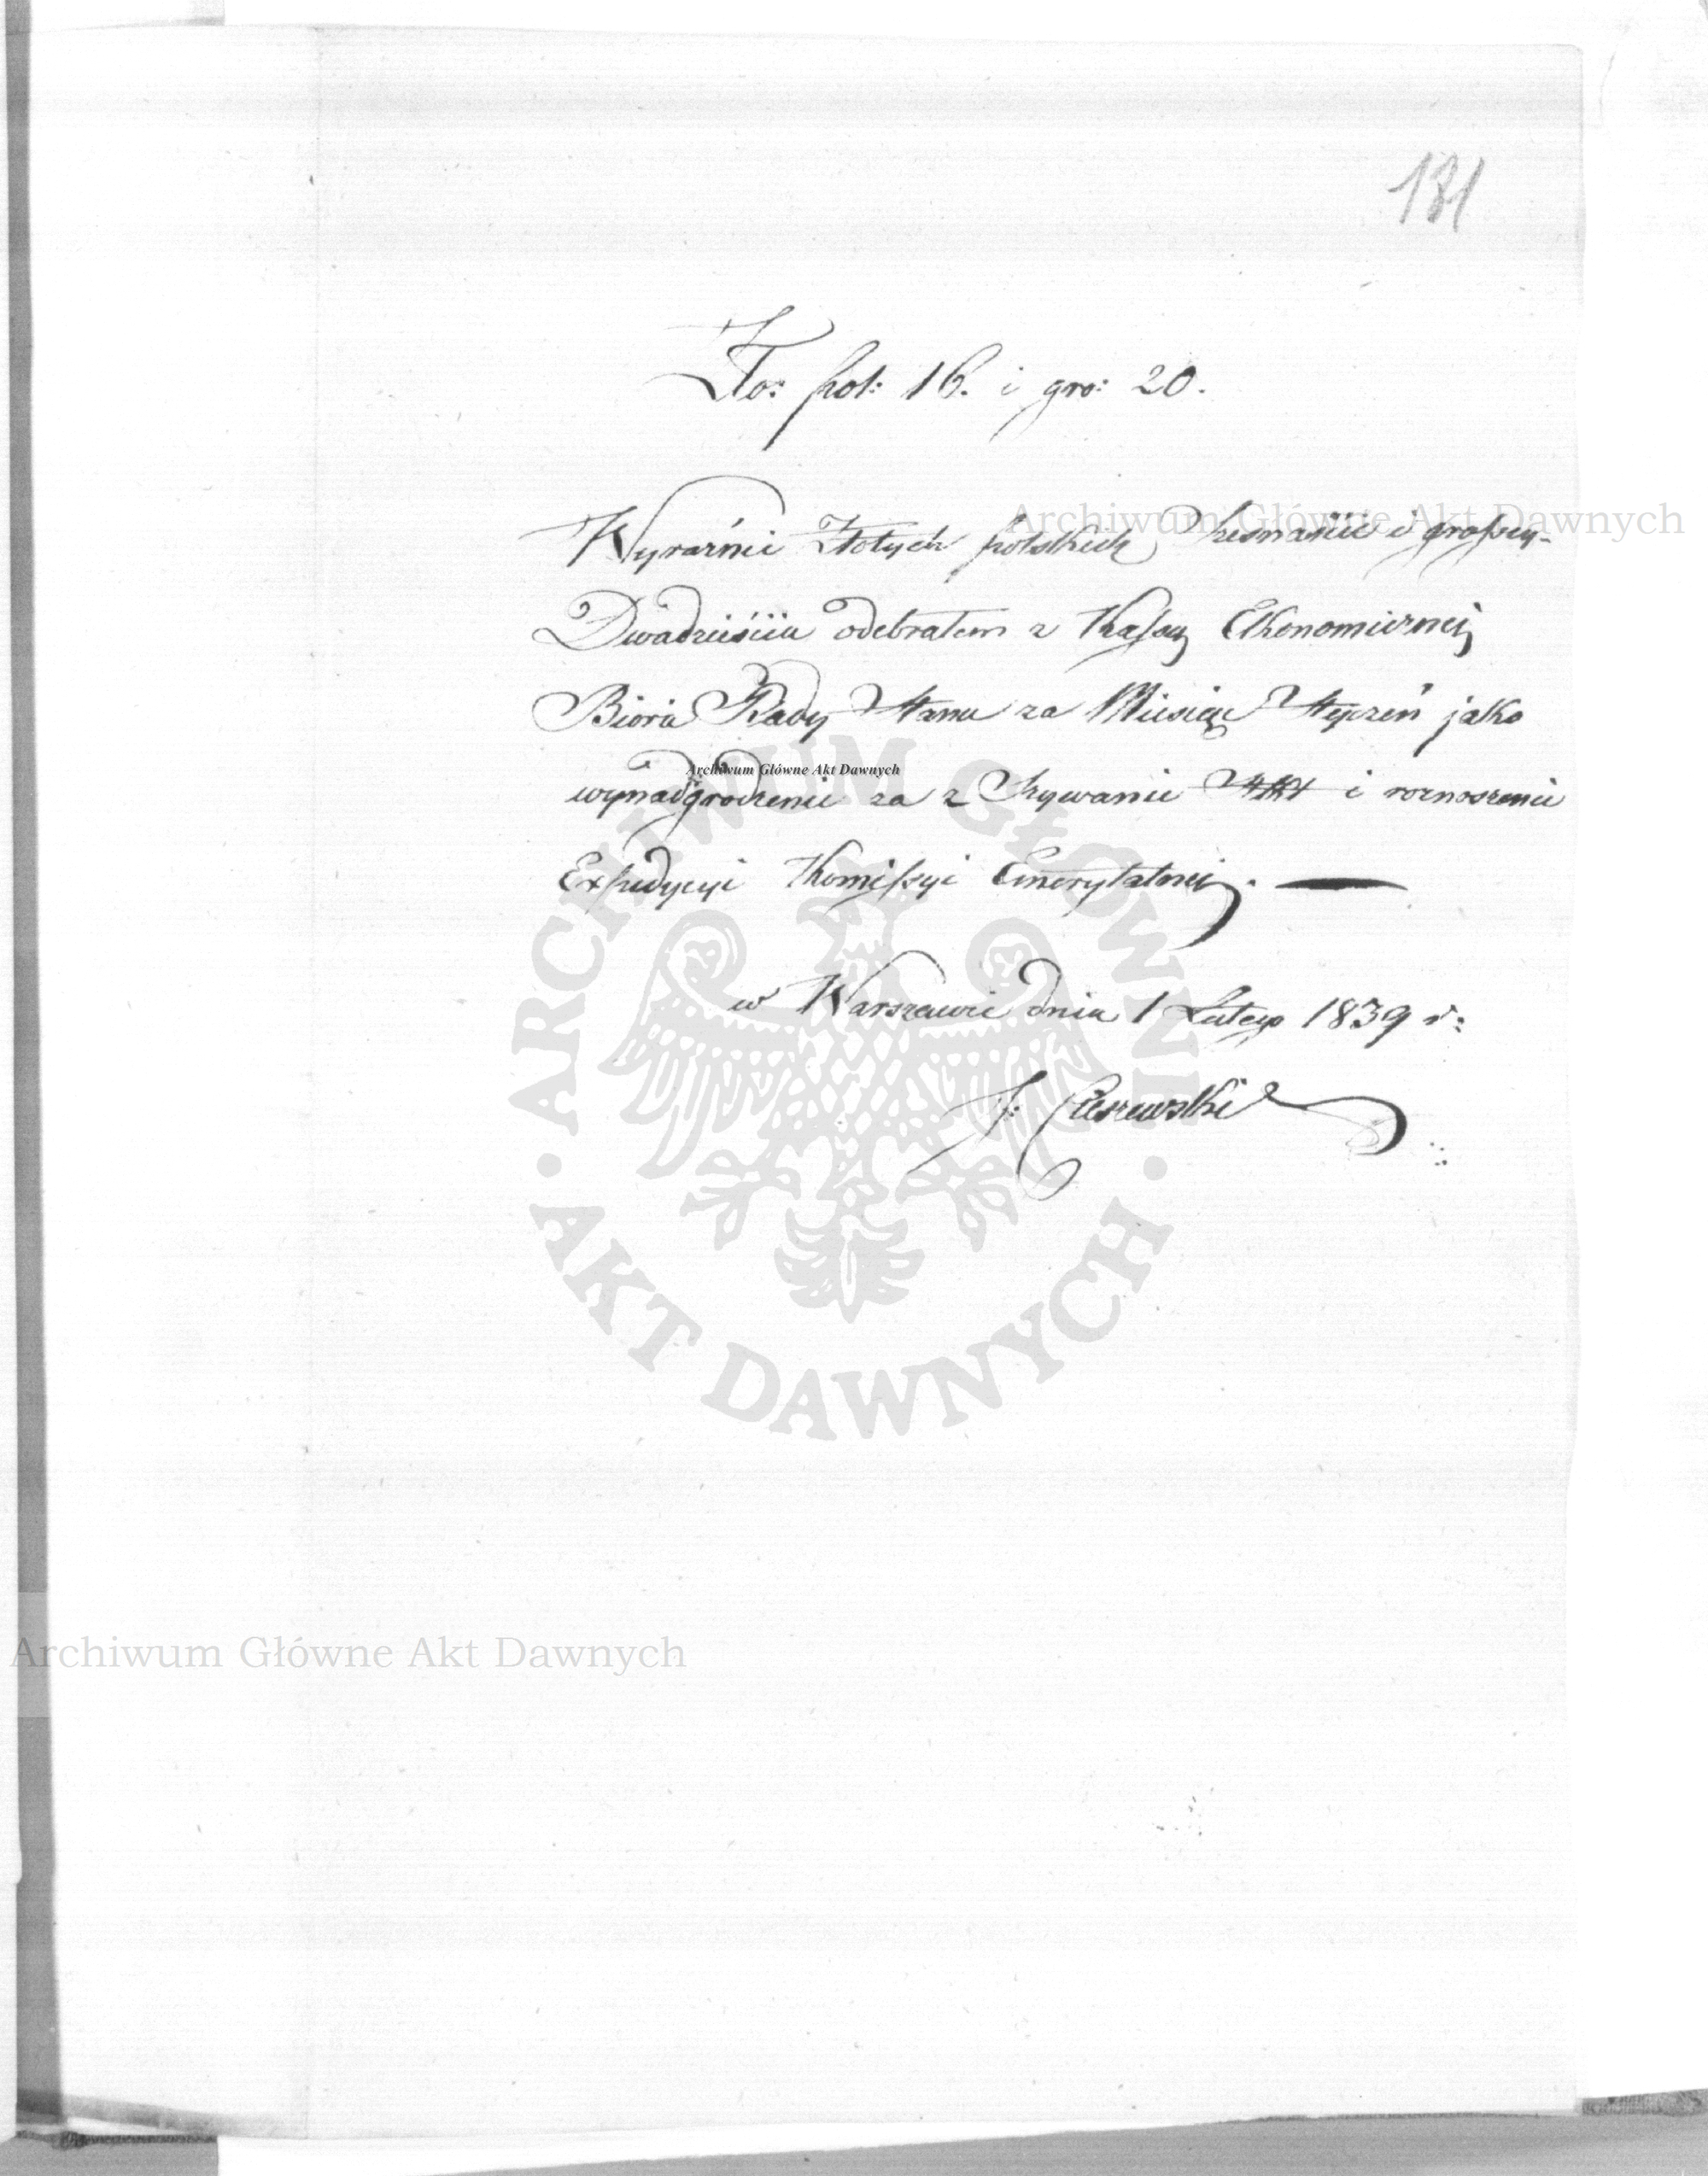 131
Zło: pol: 16. i gro: 20.
Wyraźnie Złotych polskich Szesnaście i groszy
Dwadzieścia odebrałem z Kassy Ekonomicznej
Biora Rady Stanu za Miesiąc Styczeń jako
wynadgrodzenie za z Szywanie Akt i roznoszenie
Expedycyi Komissyi Emerytalnej.
w Warszawie dnia 1 Lutego 1839 r:
Archiwum Główne Akt Dawnych
Archiwum Główne Akt Dawnych
ARCHIWUM GŁÓWNE · AKT DAWNYCH ·
Archiwum Główne Akt Dawnych